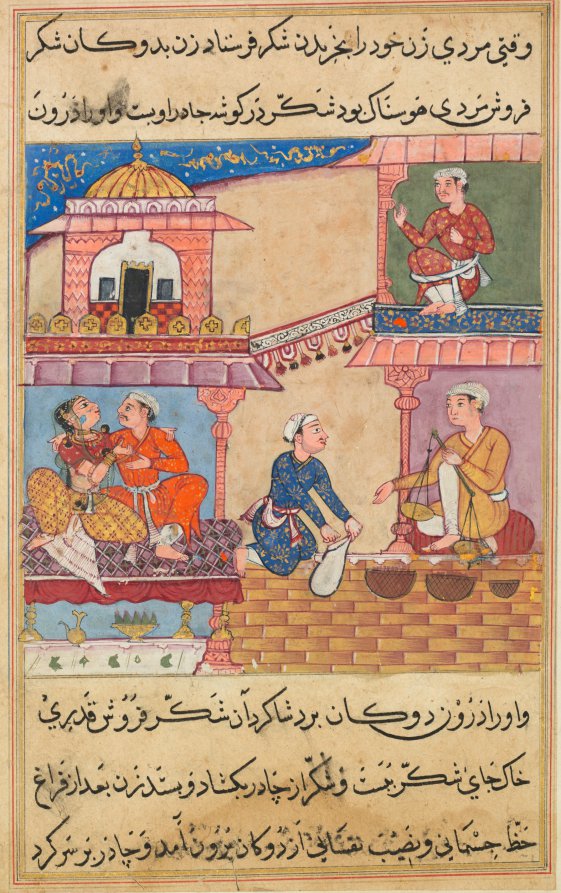 وقتی مردی زن خود را بخریدن شکر فرستاد زن بدوکان شکر
فروش مردی هوسناک بود شکر در گوشه چادر او بست و او را درون
و او را درون دوکان برد شاکرد آن شکر فروش قدیری
خاک جای شکر ببست و شکر از چادر بکشاد و بستد زن بعد از فراغ
حظ جسمانی و نصیب نفسانی از دوکان برون آمد و چادر بر سر کرد